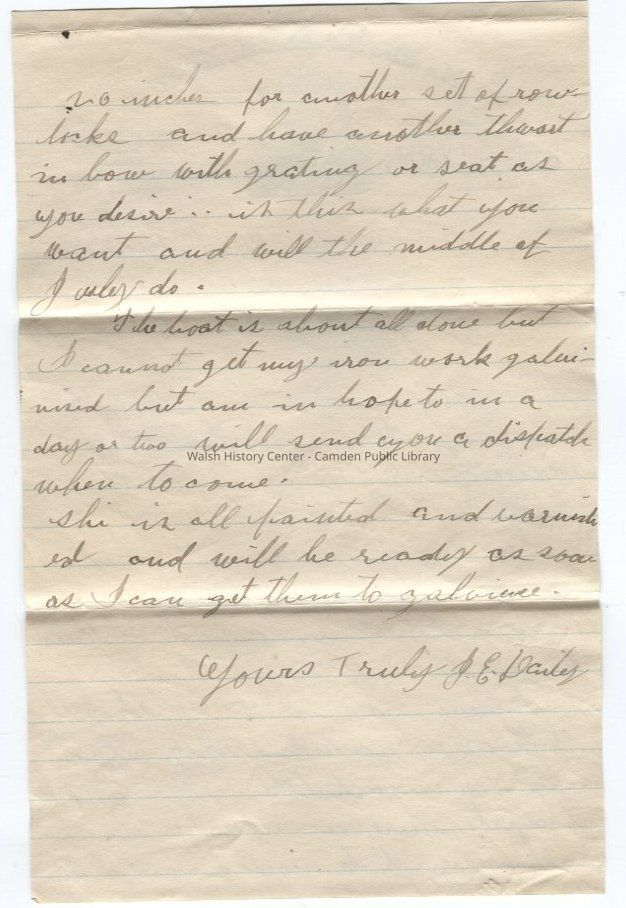 20 inches for another set of row-
locks and have another thwart
in bow with grating or seat as
you desire. is this what you
want and will the middle of
July do.
The boat is about all done but
I cannot get my iron work galvi-
nised but am in hope to in a
day or two will send you a dispatch
when to come.
shi is all painted and varnish
ed and will be ready as soon
as I can get them to galvinise.
Yours Truly J. E.
Walsh History Center - Camden Public Library